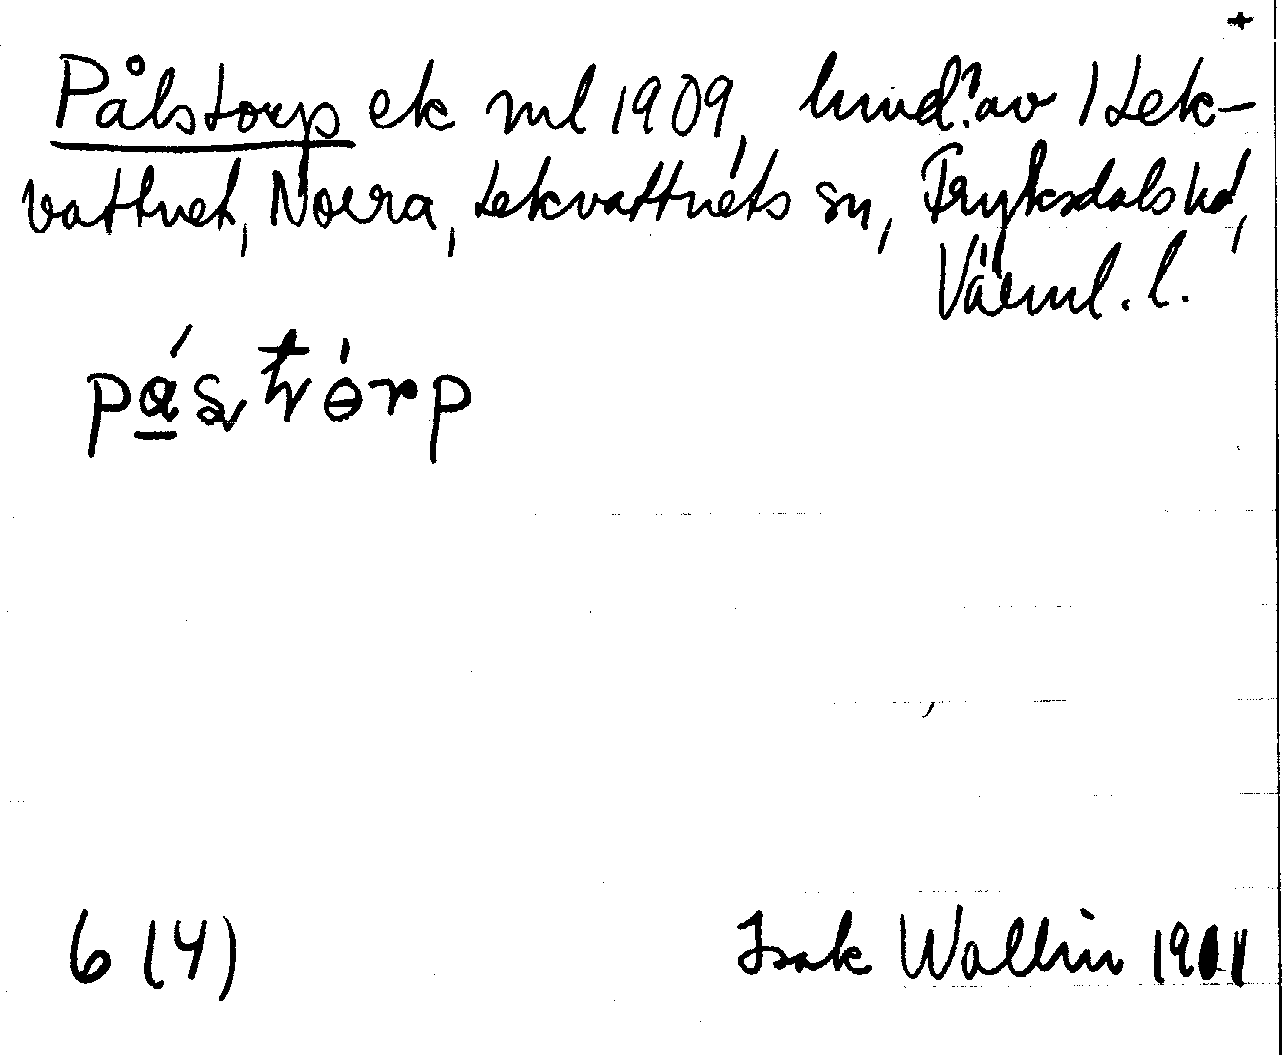 +
Pålstorp ek ml 1909, lmnd? av 1 Lek-
vattnet, Norra, Lekvattnets sn, Fryksdals hd,
Värml. l.
6 (4)
Isak Wallin 1911